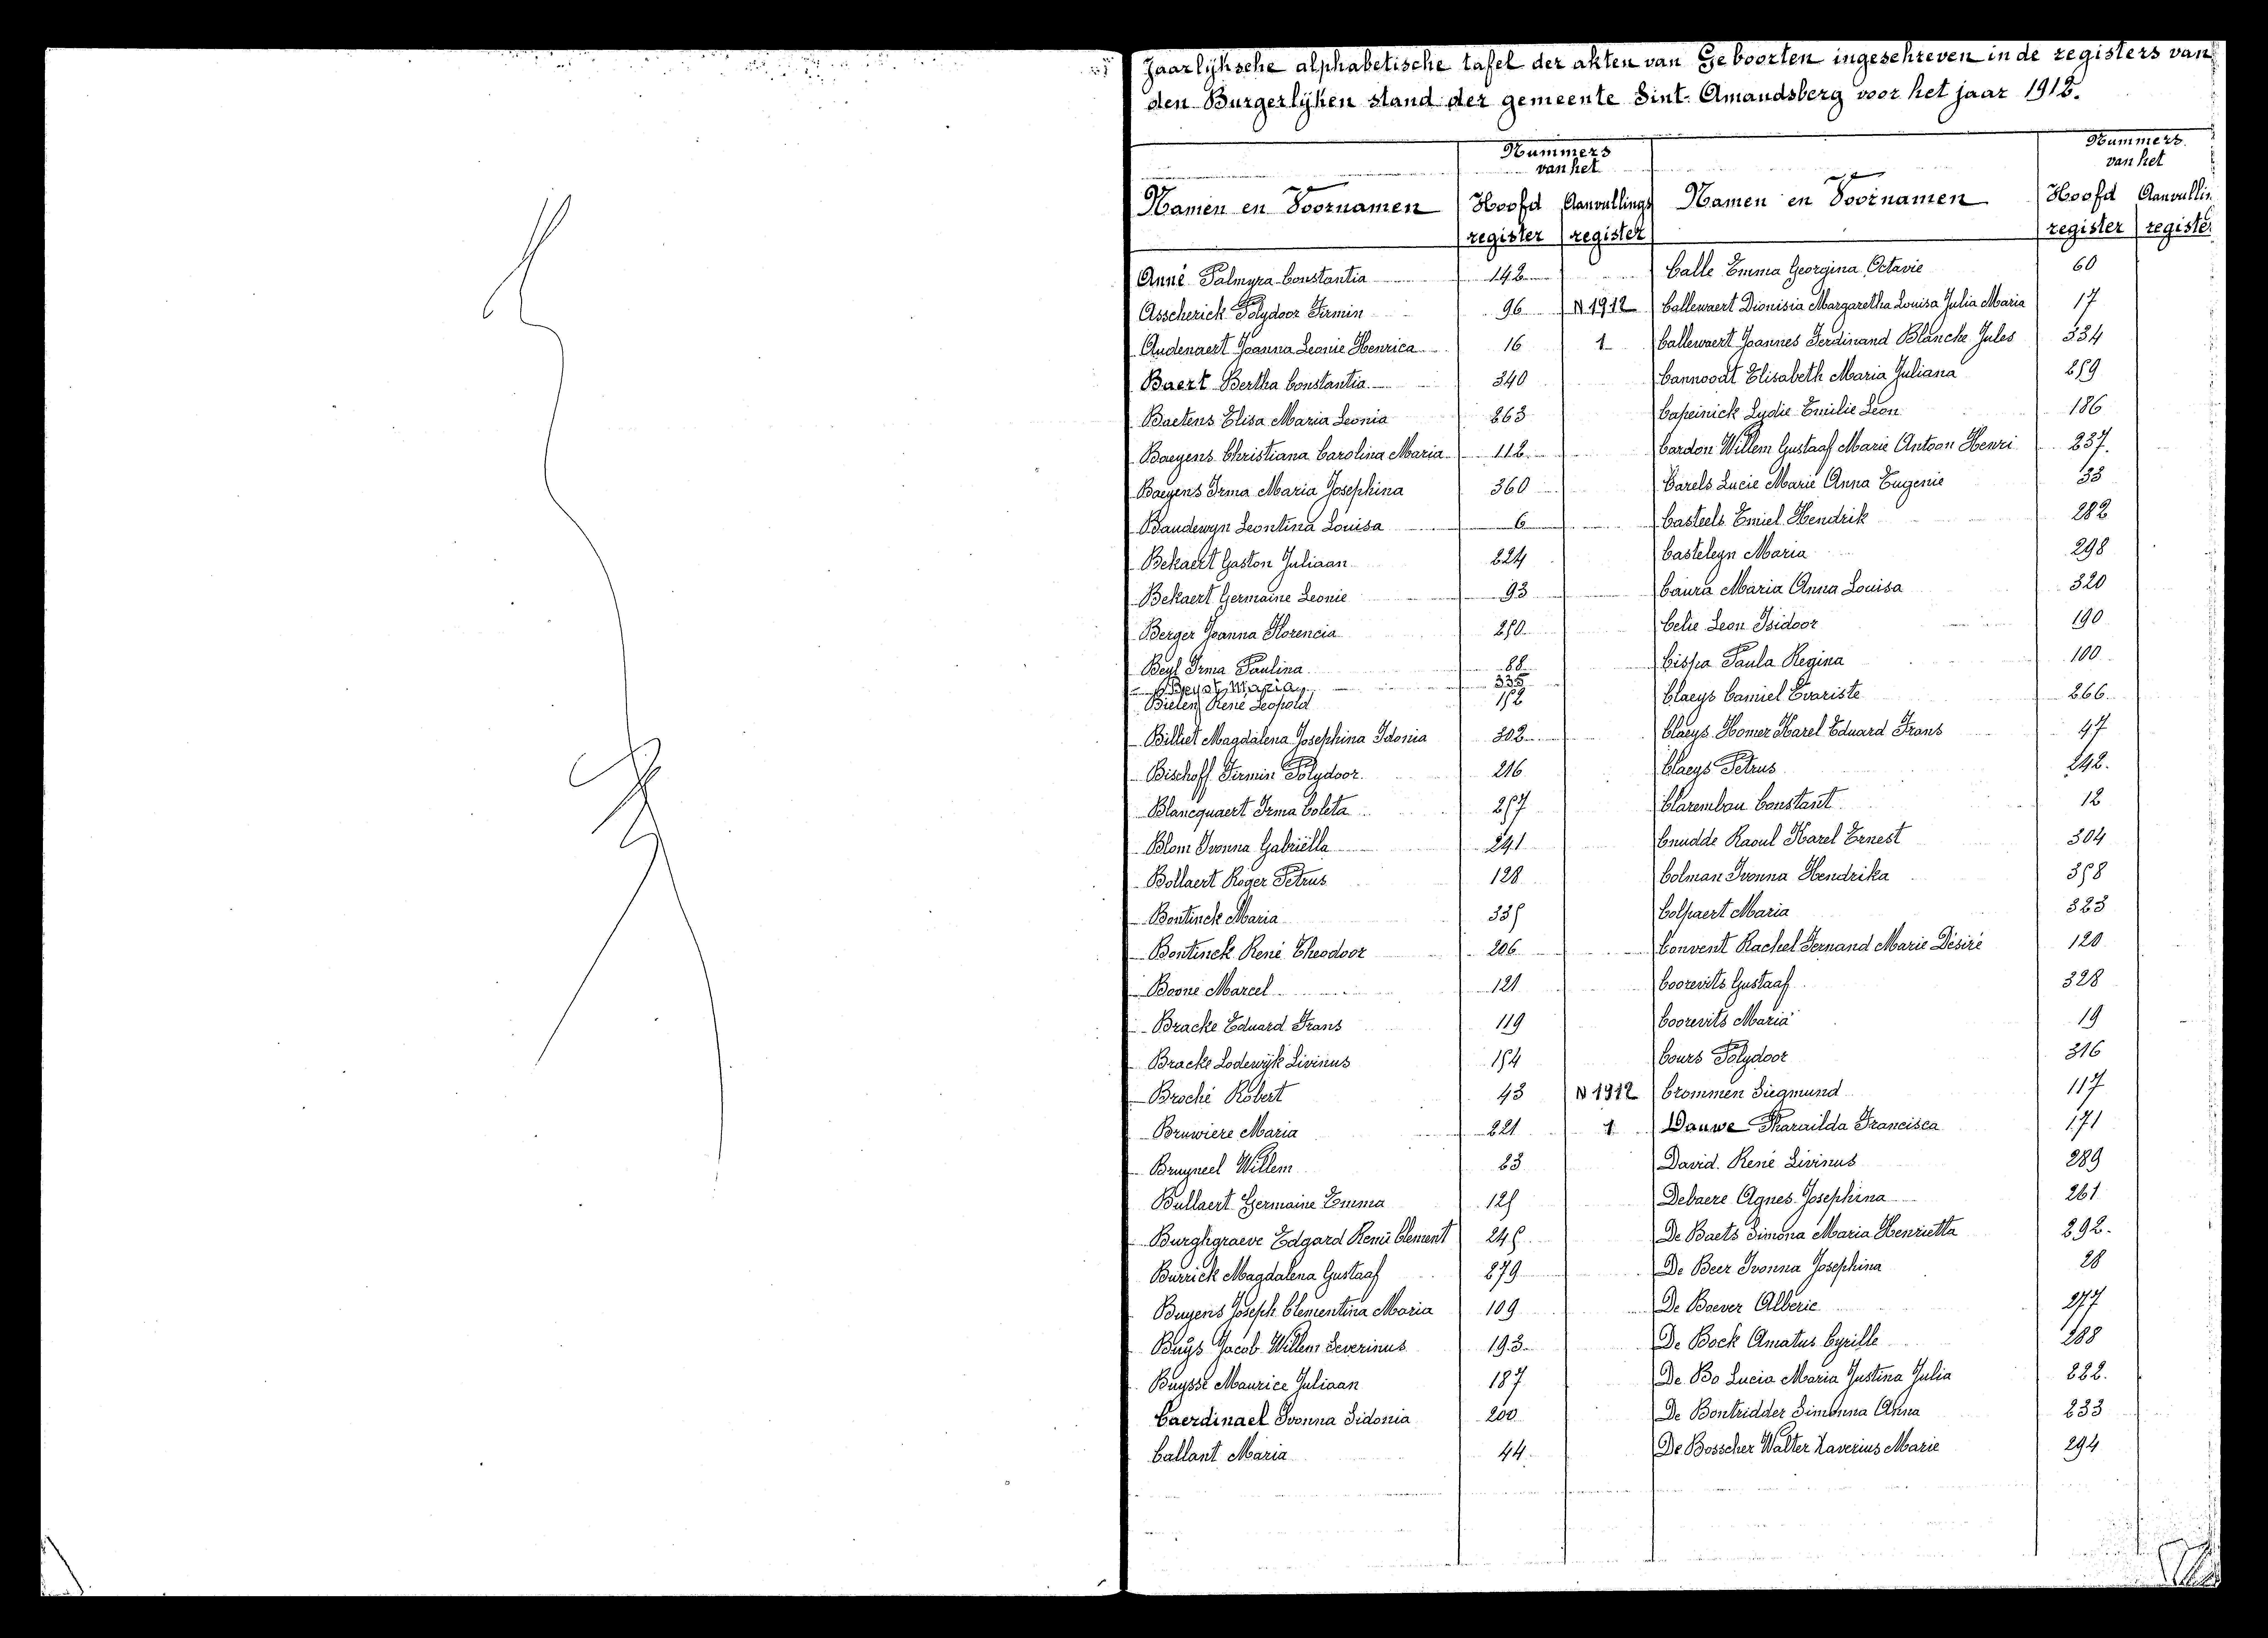 Jaarlijksche alphabetische tafel der akten van Geboorten ingeschreven in de registers van
den Burgerlijken stand der gemeente Sint-Amandsberg voor het jaar 1912.
Nummers van het
Namen en Voornamen Hoofd register Aanvullings register
Anné Palmyra Constantia 142
Asscherick Polydoor Firmin 96 N 1912
Audenaert Joanna Leonie Henrica 16 1
Baert Bertha Constantia 340
Baetens Elisa Maria Leonia 263
Baeyens Christiana Carolina Maria 112
Baeyens Irma Maria Josephina 360
Baudewyn Leontina Louisa 6
Bekaert Gaston Juliaan 224
Bekaert Germaine Leonie 93
Berger Joanna Florencia 250
Beyl Irma Paulina 88
Beyst Maria 335
Bielen René Leopold 152
Billiet Magdalena Josephina Idonia 302
Bischoff Firmin Polydoor 216
Blancquaert Irma Coleta 257
Blom Ivonna Gabriëlla 241
Bollaert Roger Petrus 128
Bontinck Maria 335
Bontinck René Theodoor 206
Boone Marcel 121
Bracke Eduard Frans 119
Bracke Lodewijk Livinus 154
Broché Robert 43 N 1912
Bruwiere Maria 221 1
Bruyneel Willem 23
Bullaert Germaine Emma 125
Burghgraeve Edgard René Clement 245
Burrick Magdalena Gustaaf 279
Buyens Joseph Clementina Maria 109
Buÿs Jacob Willem Severinus 193
Buysse Maurice Juliaan 187
Caerdinael Ivonna Sidonia 200
Callant Maria 44
Nummers van het
Namen en Voornamen Hoofd register Aanvullin registe
Calle Emma Georgina Octavie 60
Callewaert Dionisia Margaretha Louisa Julia Maria 17
Callewaert Joannes Ferdinand Blanche Jules 334
Cannoodt Elisabeth Maria Juliana 259
Capeinick Lydie Emilie Leon 186
Cardon Willem Gustaaf Marie Antoon Henri 237.
Carels Lucie Marie Anna Eugenie 33
Casteels Emiel Hendrik 282
Casteleyn Maria 298
Caura Maria Anna Louisa 320
Celie Leon Isidoor 190
Cispa Paula Regina 100
Claeys Camiel Evariste 266
Claeys Homer Karel Eduard Frans 47
Claeys Petrus 242.
Clarembau Constant 12
Cnudde Raoul Karel Ernest 304
Colman Ivonna Hendrika 358
Colpaert Maria 323
Convent Rachel Fernand Marie Désiré 120
Coorevits Gustaaf 328
Coorevits Maria 19
Cours Polydoor 316
Crommen Siegmund 117
Dauwe Pharaïlda Francisca 171
David René Livinus 289
Debaere Agnes Josephina 261
De Baets Simona Maria Henrietta 292.
De Beer Ivonna Josephina 28
De Boever Alberic 277
De Bock Amatus Cyrille 288
De Bo Lucia Maria Justina Julia 222.
De Bontridder Simonna Anna 233
De Bosscher Walter Xaverius Marie 294